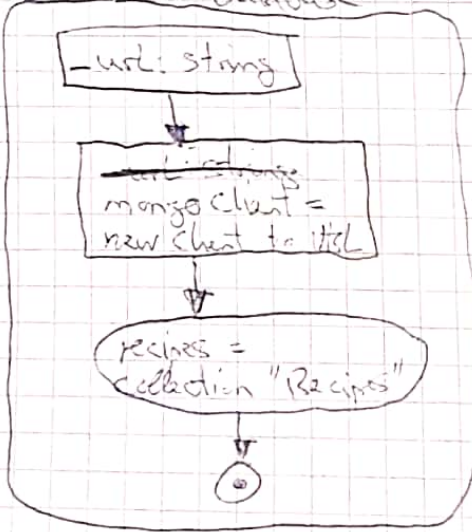 _url: string
url: string
mongoClient =
new Client to URL
recipes =
collection "Recipes"